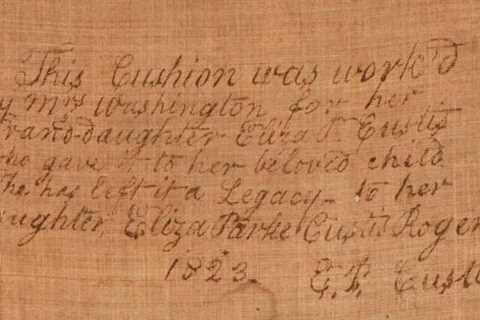 This Cushion was work'd
y Mrs Washington for her
rand-daughter Eliza P. Custis
ho gave it to her beloved child
he has left it a Legacy - to her
aughter, Eliza Parke Custis Roger
1823. E. P. Custi